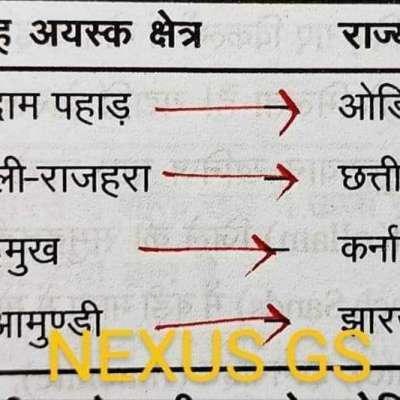 ह अयस्क क्षेत्र राज्
दाम पहाड़ ओडि
ली-राजहरा छत्ती
मुख कर्ना
आमुण्डी झार
NEXUS GS